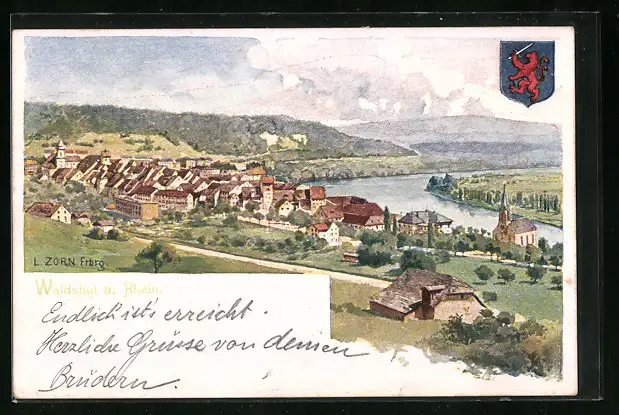 L. ZORN Frbrg.
Waldshut a. Rhein.
Endlich ist's erreicht.
Herzliche Grüsse von deinen
Brüdern.